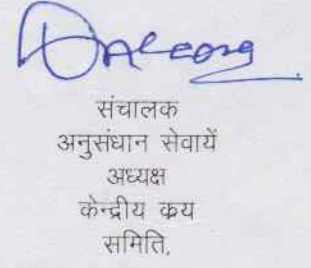 संचालक
अनुसंधान सेवायें
अध्यक्ष
केन्द्रीय कय
समिति,